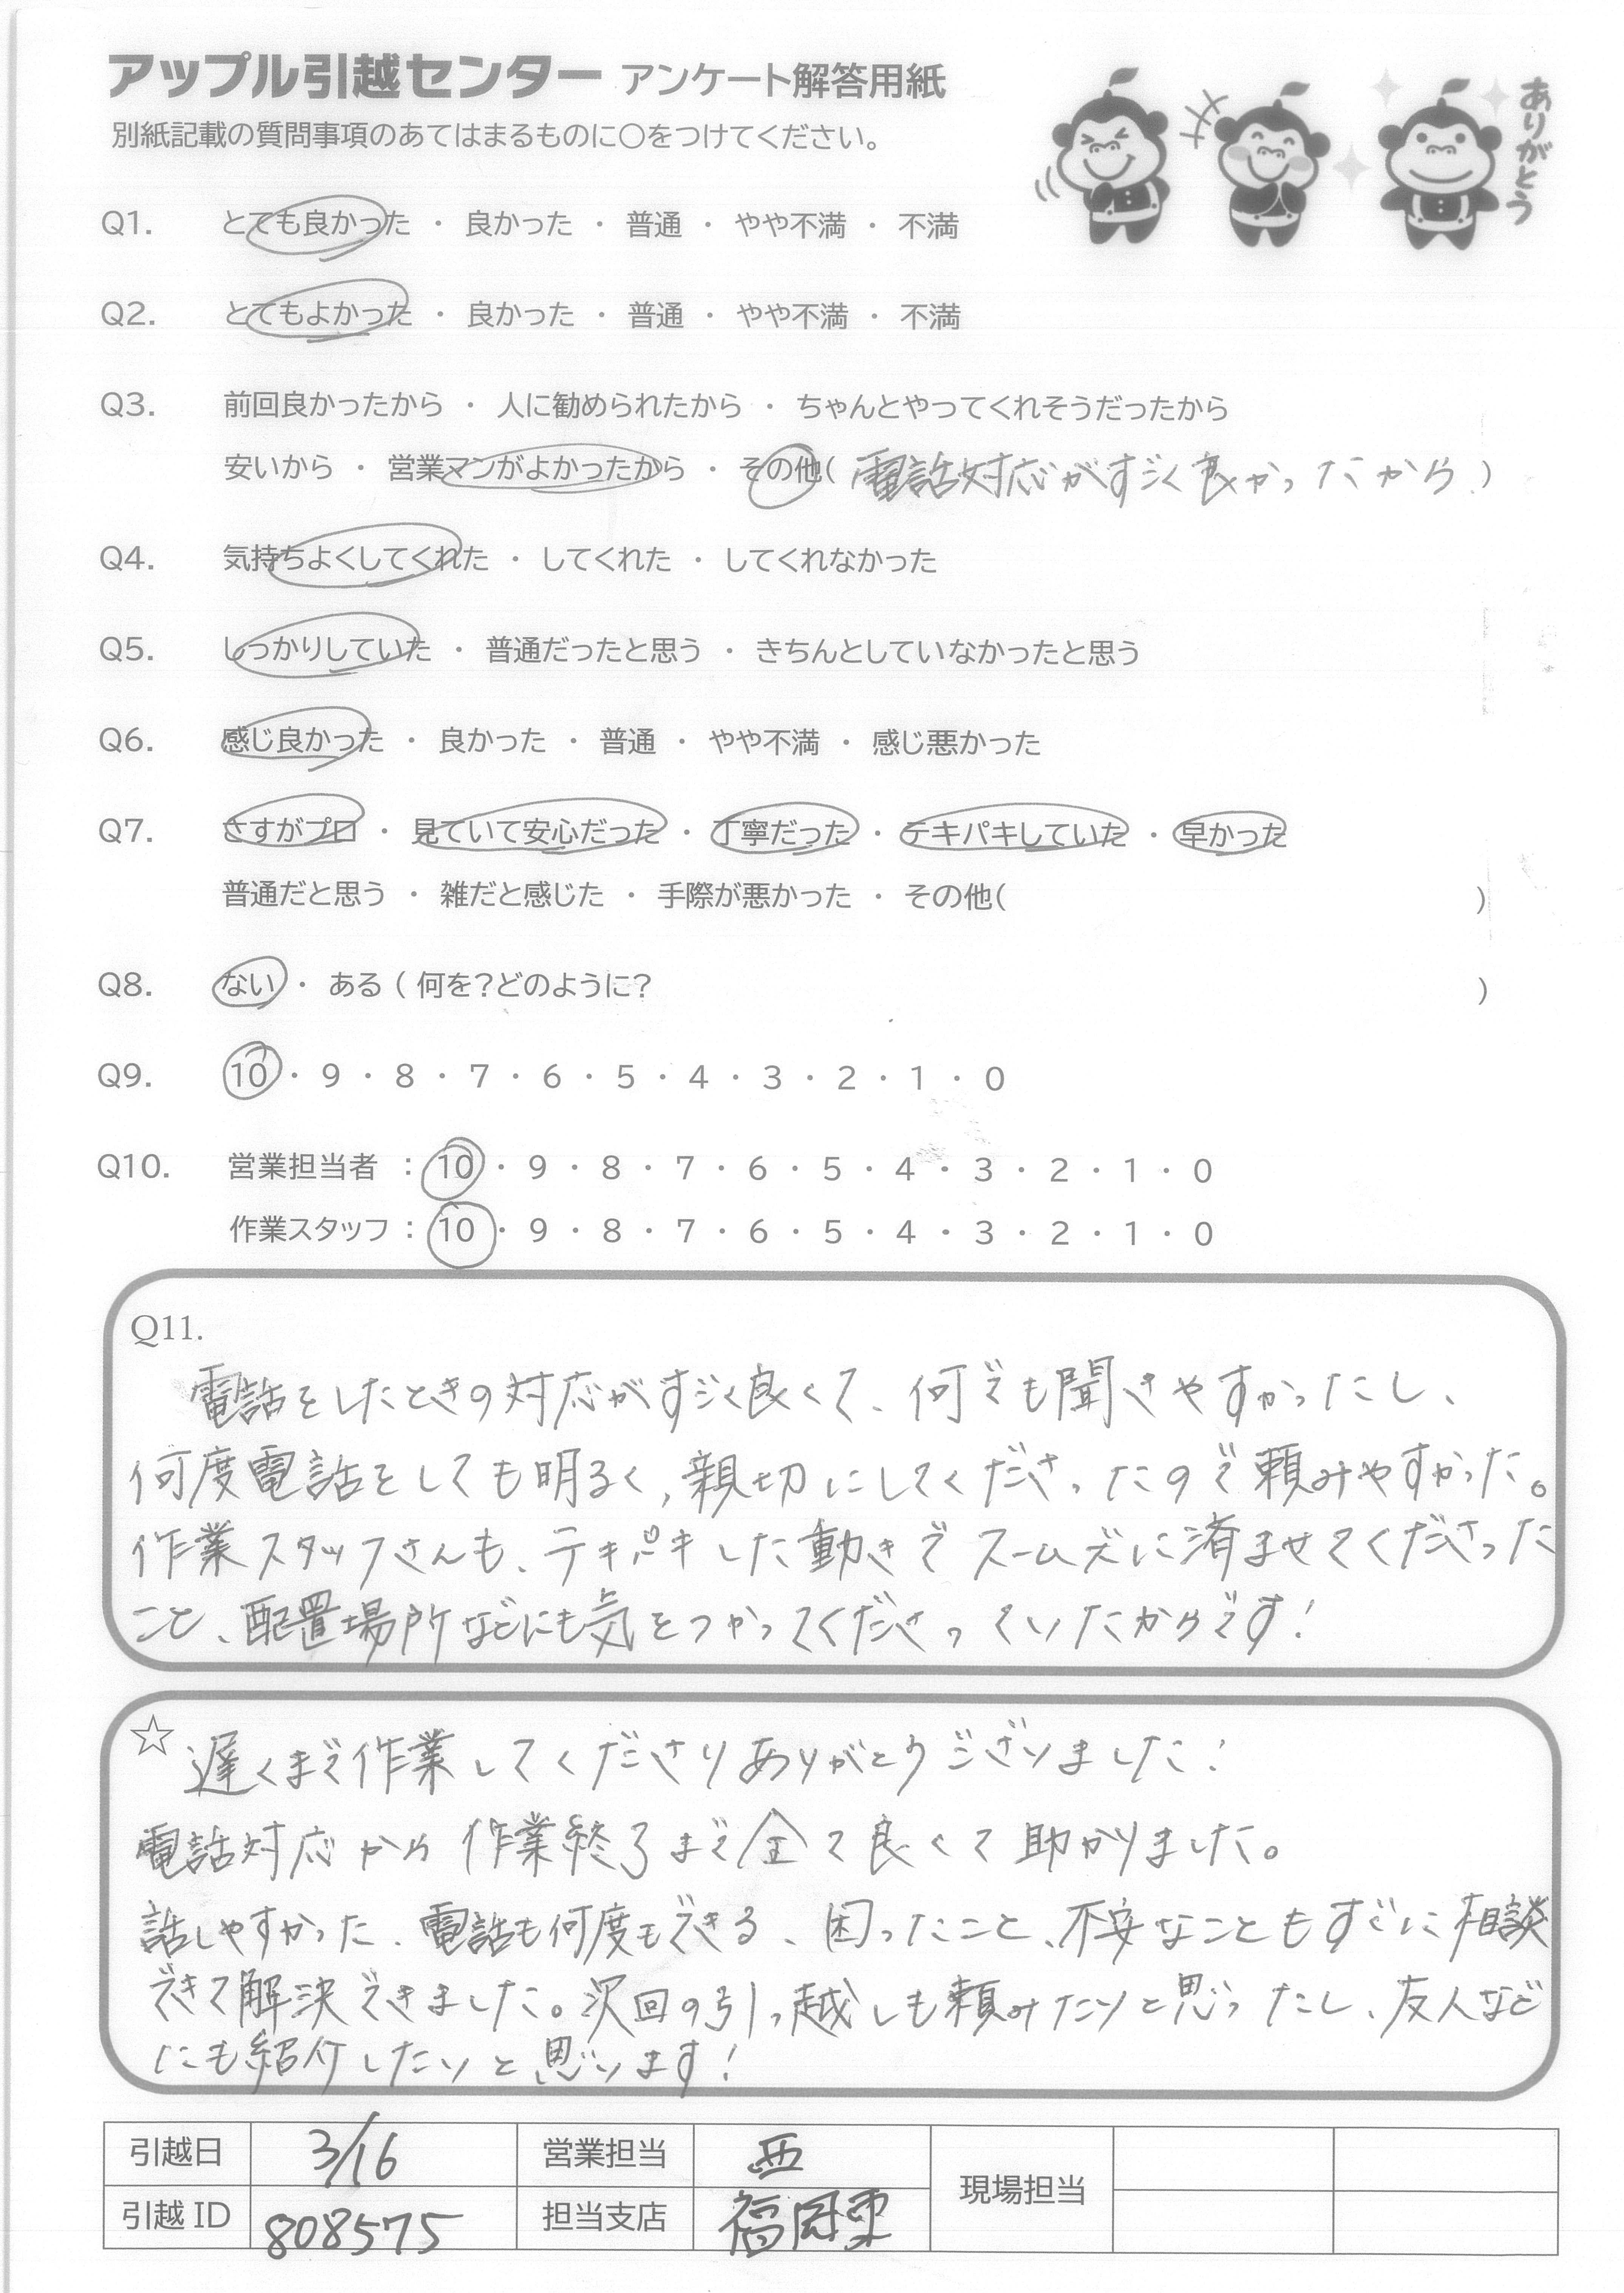 アップル引越センター アンケート解答用紙
別紙記載の質問事項のあてはまるものに○をつけてください。
ありがとう
Q1. とても良かった ・ 良かった ・ 普通 ・ やや不満 ・ 不満
Q2. とてもよかった ・ 良かった ・ 普通 ・ やや不満 ・ 不満
Q3. 前回良かったから ・ 人に勧められたから ・ ちゃんとやってくれそうだったから
安いから ・ 営業マンがよかったから ・ その他( 電話対応がすごく良かったから )
Q4. 気持ちよくしてくれた ・ してくれた ・ してくれなかった
Q5. しっかりしていた ・ 普通だったと思う ・ きちんとしていなかったと思う
Q6. 感じ良かった ・ 良かった ・ 普通 ・ やや不満 ・ 感じ悪かった
Q7. さすがプロ ・ 見ていて安心だった ・ 丁寧だった ・ テキパキしていた ・ 早かった
普通だと思う ・ 雑だと感じた ・ 手際が悪かった ・ その他( )
Q8. ない ・ ある ( 何を?どのように? )
Q9. 10 ・ 9 ・ 8 ・ 7 ・ 6 ・ 5 ・ 4 ・ 3 ・ 2 ・ 1 ・ 0
Q10. 営業担当者 : 10 ・ 9 ・ 8 ・ 7 ・ 6 ・ 5 ・ 4 ・ 3 ・ 2 ・ 1 ・ 0
作業スタッフ : 10 ・ 9 ・ 8 ・ 7 ・ 6 ・ 5 ・ 4 ・ 3 ・ 2 ・ 1 ・ 0
Q11.
電話をしたときの対応がすごく良くて、何でも聞きやすかったし、
何度電話をしても明るく、親切にしてくださったので頼みやすかった。
作業スタッフさんも、テキパキした動きでスームズに済ませてくださった
こと、配置場所などにも気をつかってくださっていたからです!
☆ 遅くまで作業してくださりありがとうございました!
電話対応から作業終了まで全て良くて助かりました。
話しやすかった、電話も何度もできる、困ったこと、不安なこともすぐに相談
できて解決できました。次回の引っ越しも頼みたいと思ったし、友人など
にも紹介したいと思います!
引越日 3/16 営業担当 西 現場担当
引越ID 808575 担当支店 福岡東